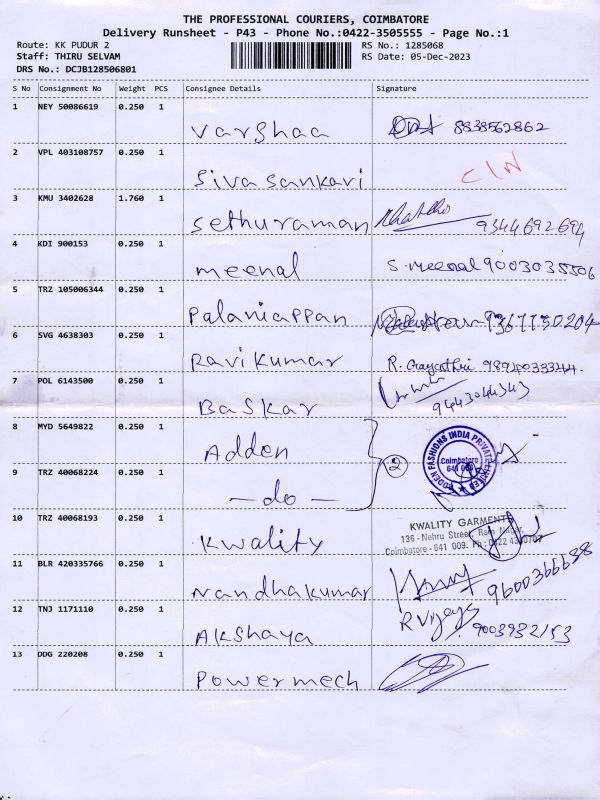 THE PROFESSIONAL COURIERS, COIMBATORE
Delivery Runsheet - P43 - Phone No.:0422-3505555 - Page No.:1
Route: KK PUDUR 2
RS No.: 1285068
Staff: THIRU SELVAM
RS Date: 05-Dec-2023
DRS No.: DCJB128506801
S No Consignment No Weight PCS Consignee Details Signature
1 NEY 50086619 0.250 1
Varshaa 8838562862
2 VPL 403108757 0.250 1
Sivasankari C/N
3 KMU 3402628 1.760 1
Sethuraman 9344692694
4 KDI 900153 0.250 1
meenal S.meenal 9003035506
5 TRZ 105006344 0.250 1
Palaniappan 9367150204
6 SVG 4638303 0.250 1
Ravikumar R. Gayathri
7 POL 6143500 0.250 1
Baskar 9443044343
8 MYD 5649822 0.250 1
Adden
2
ADDEN FASHIONS INDIA PRIVATE LIMITED
Coimbatore
641
9 TRZ 40068224 0.250 1
— do —
10 TRZ 40068193 0.250 1
Kwality
KWALITY GARMENTS
136 - Nehru Street, Ram Nagar,
Coimbatore - 641 009. Ph: 0422
11 BLR 420335766 0.250 1
Nandhakumar 9600366638
12 TNJ 1171110 0.250 1
Akshaya R Vijaya 9003932153
13 DDG 220208 0.250 1
Powermech